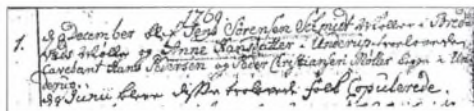 1769
1. 29 December blef Jens Sørensen Schmidt Møller i Bred
vads Mølle og Anne Hansdatter i Underup trolovede
Cavebant Hans Pedersen og Peder Christiansen Møller begge i Un
derup.
29 Junii bleve disse trolovede folk Copulerede.